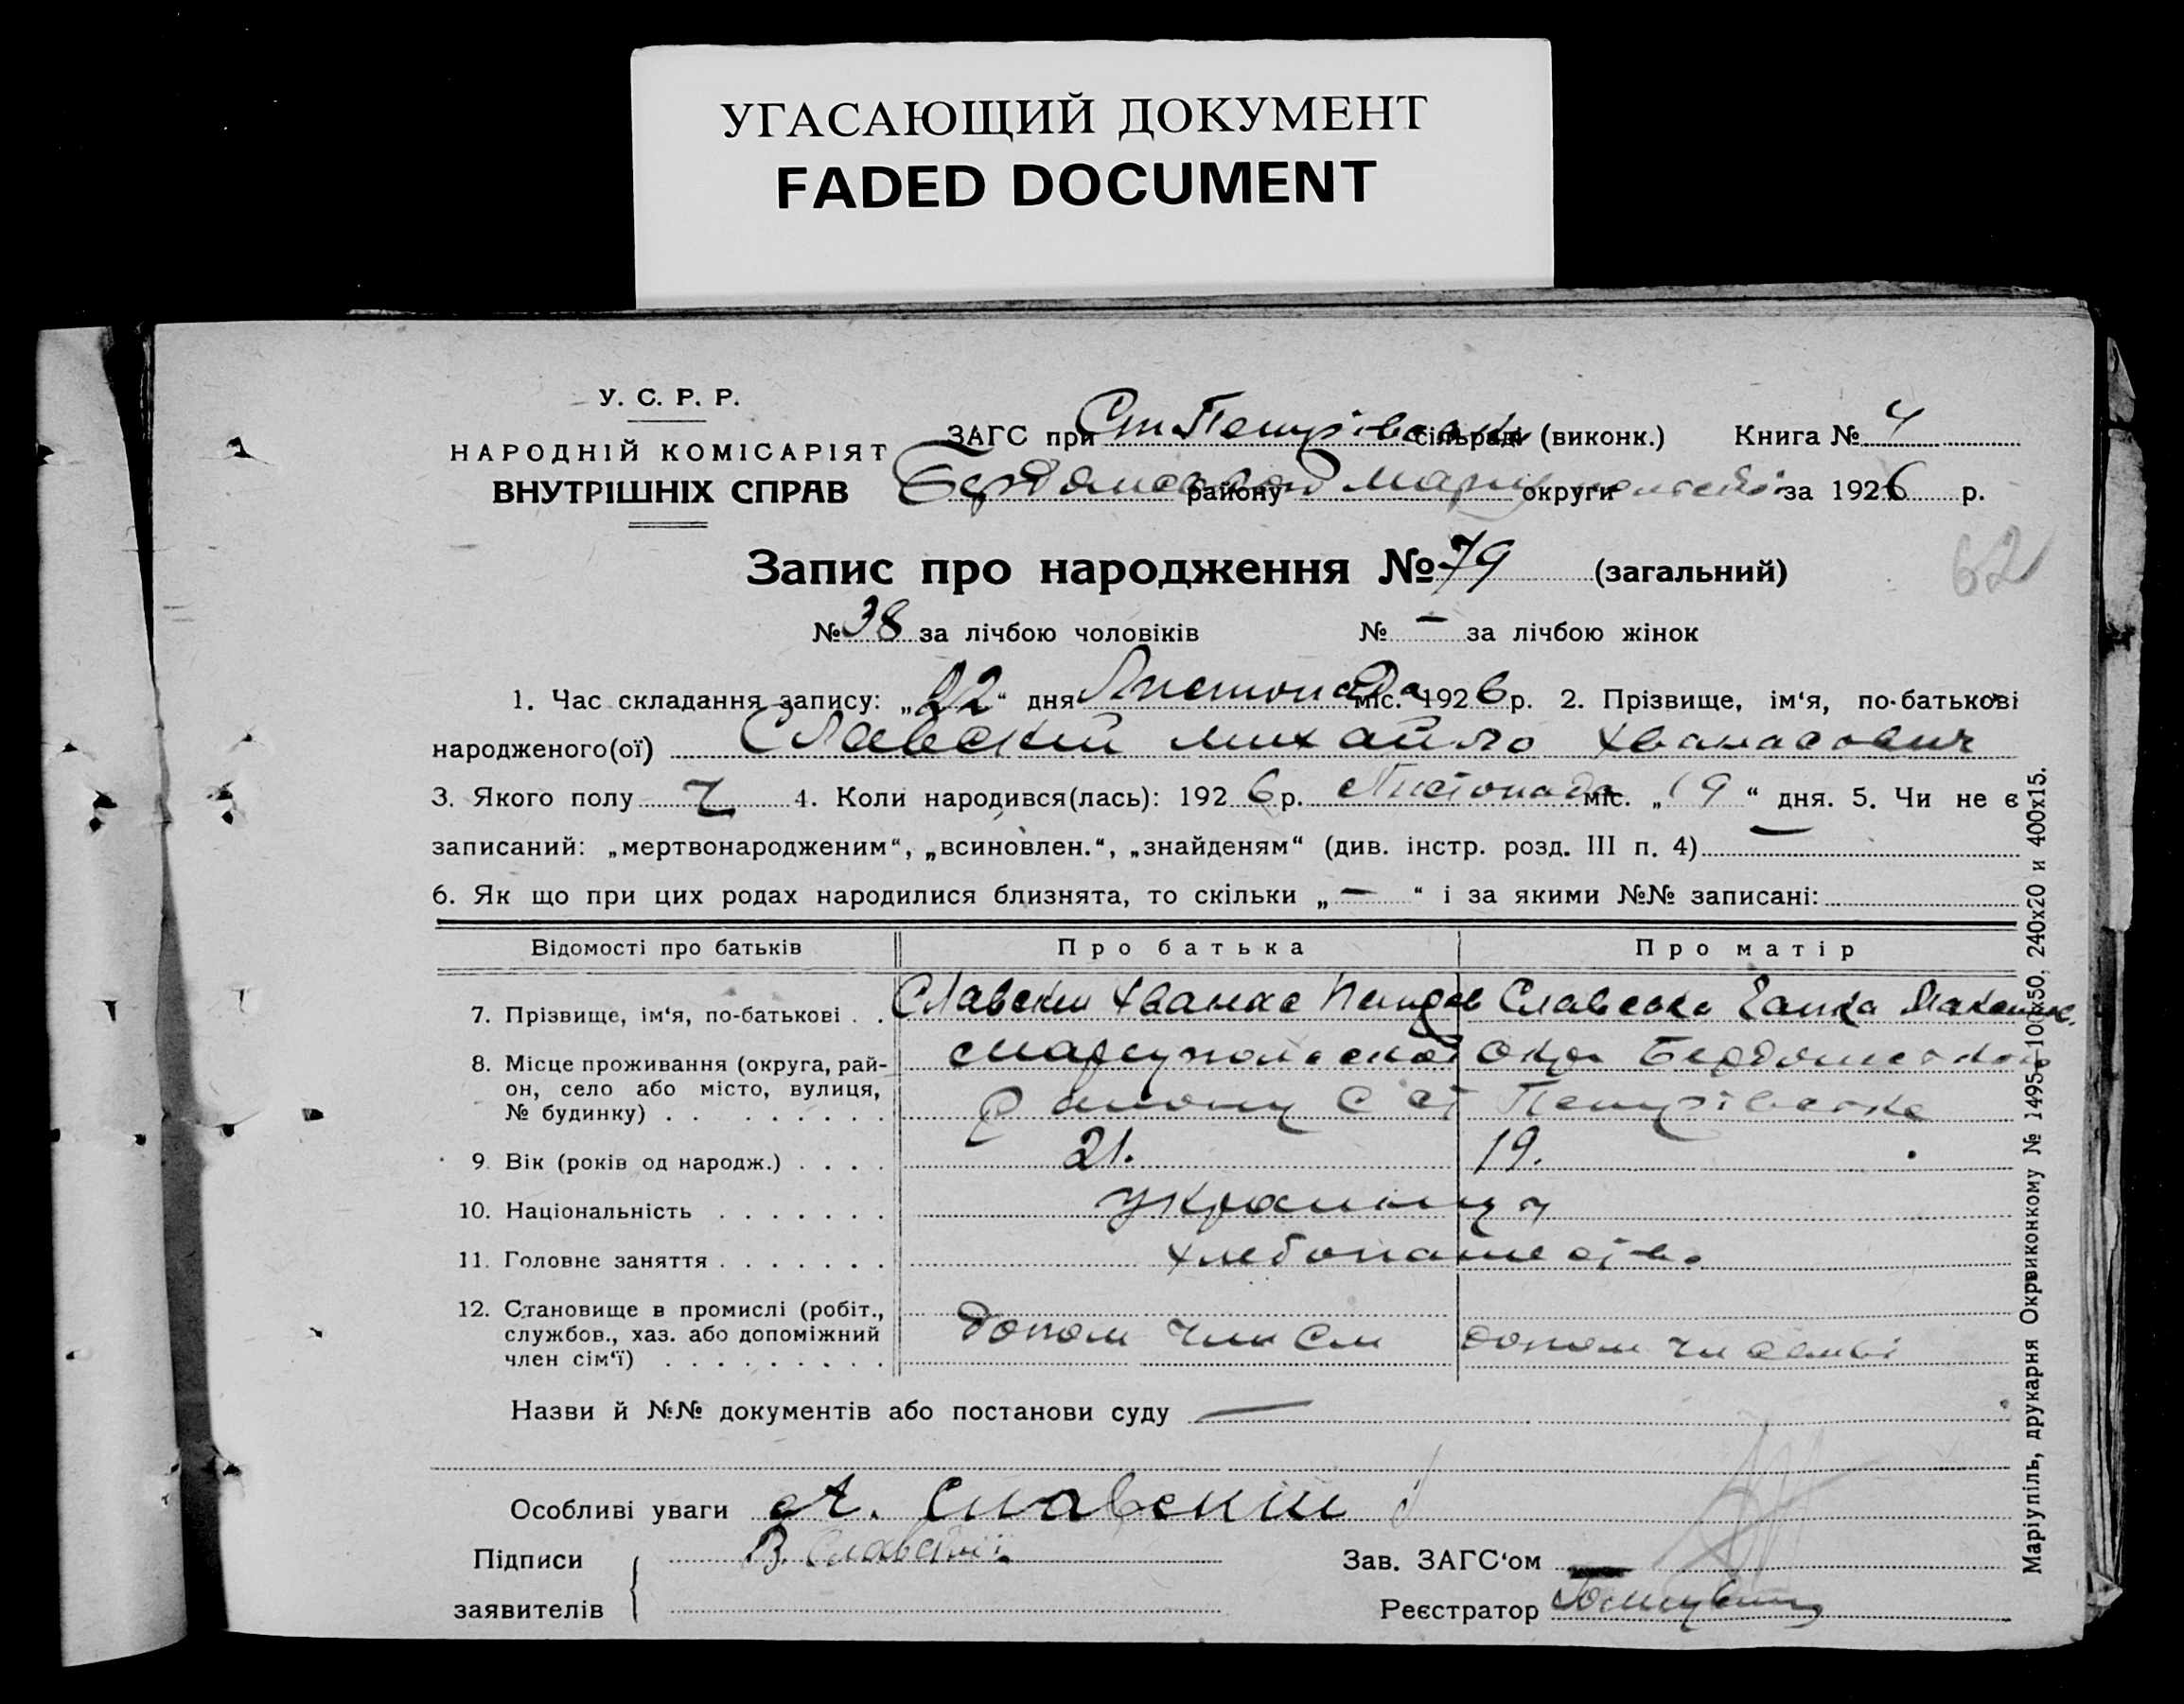 УГАСАЮЩИЙ ДОКУМЕНТ
FADED DOCUMENT
У. С. Р. Р.
НАРОДНІЙ КОМІСАРІЯТ
ВНУТРІШНІХ СПРАВ
ЗАГС при Ст Петрівськ сільраді (виконк.) Книга № 4
Бердянськой району Маріупольської округи за 1926 р.
62
Запис про народження № 79 (загальний)
№ 38 за лічбою чоловіків № — за лічбою жінок
1. Час складання запису: „22“ дня Листопада міс. 1926 р. 2. Прізвище, ім‘я, по-батькові
народженого(ої) Славский Михайло Хванасович
3. Якого полу Ч 4. Коли народився(лась): 1926 р. Листопада міс. „19“ дня. 5. Чи не є
записаний: „мертвонародженим“, „всиновлен.“, „знайденям“ (див. інстр. розд. III п. 4) —
6. Як що при цих родах народилися близнята, то скільки „ — “ і за якими №№ записані:
Відомості про батьків Про батька Про матір
7. Прізвище, ім‘я, по-батькові . . Славский Хванас Славська Ганка
8. Місце проживання (округа, рай- Маріупольской Окр Бердянской
он, село або місто, вулиця, району С Ст Петрівська
№ будинку) . . . . . . . .
9. Вік (років од народж.) . . . . 21. 19.
10. Національність . . . . . . . українці
11. Головне заняття . . . . . . . хлебопашество
12. Становище в промислі (робіт., допом член См допом чл семьі
службов., хаз. або допоміжний
член сім‘ї) . . . . . . . . .
Назви й №№ документів або постанови суду —
Особливі уваги А. Славский
Підписи В. Славский
заявителів
Зав. ЗАГС‘ом
Реєстратор
Маріупіль, друкарня Окрвиконкому № 1495—100х50, 240х20 и 400х15.